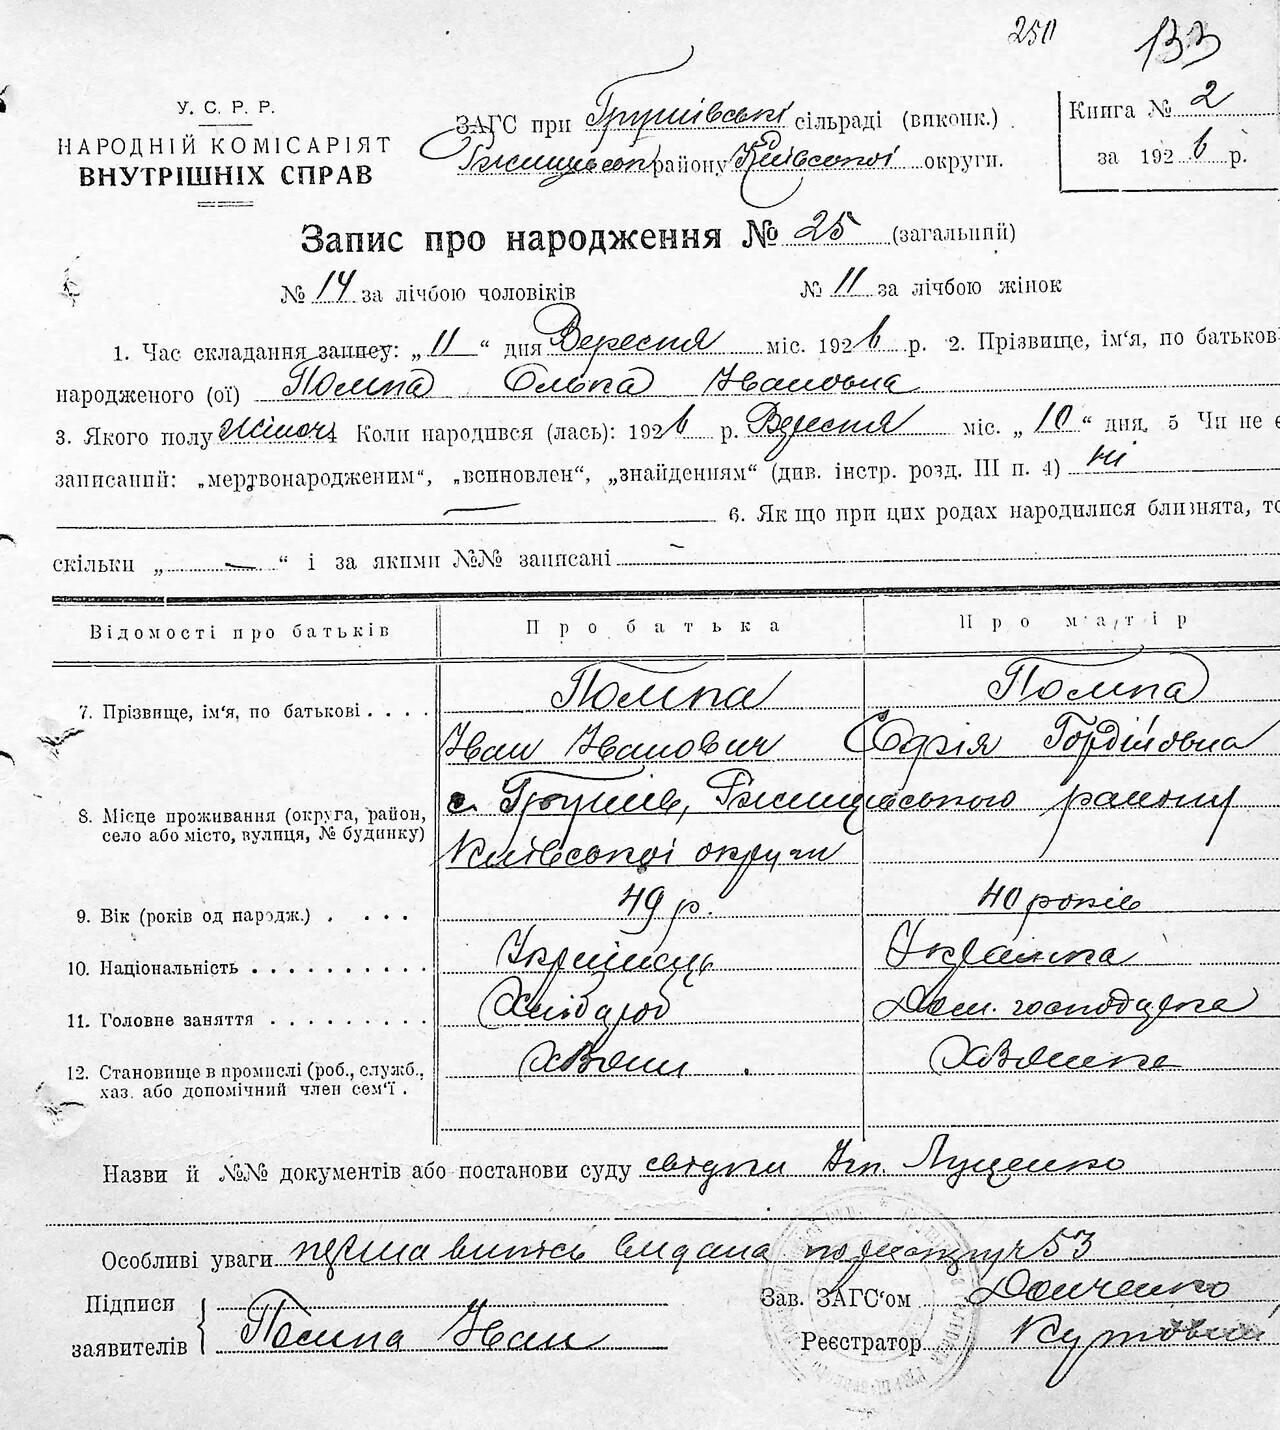 250 133
У. С. Р. Р.
НАРОДНІЙ КОМІСАРІЯТ
ВНУТРІШНІХ СПРАВ
ЗАГС при Грушівські сільраді (виконк.)
району Київської округи.
Книга № 2
за 1926 р.
Запис про народження № 25 (загальний)
№ 14 за лічбою чоловіків № 11 за лічбою жінок
1. Час складання запису: „ 11 “ дня Вересня міс. 1926 р. 2. Прізвище, ім‘я, по батькові
народженого (ої) Ольга Івановна
3. Якого полу жіноч. Коли народився (лась): 1926 р. Вересня міс. „ 10 “ дня. 5 Чи не є
записаний: „мертвонародженим“, „всиновлен“, „знайденням“ (див. інстр. розд. III п. 4) ні
— 6. Як що при цих родах народилися близнята, то
скільки „ — “ і за якими №№ записані —
Відомості про батьків Про батька Про матір
7. Прізвище, ім‘я, по батькові
Іван Іванович Софія Гордійовна
8. Місце проживання (округа, район, село або місто, вулиця, № будинку)
с. Грушів, району
Київської округи
9. Вік (років од народж.) 49 р. 40 років
10. Національність Українець Українка
11. Головне заняття Хлібороб Дом. господарка
12. Становище в промислі (роб., служб.,
хаз. або допомічний член сем‘ї.
Назви й №№ документів або постанови суду свідки Луценко
Особливі уваги видана 53
Підписи Зав. ЗАГС‘ом Донченко
заявителів Іван Реєстратор Кутовий